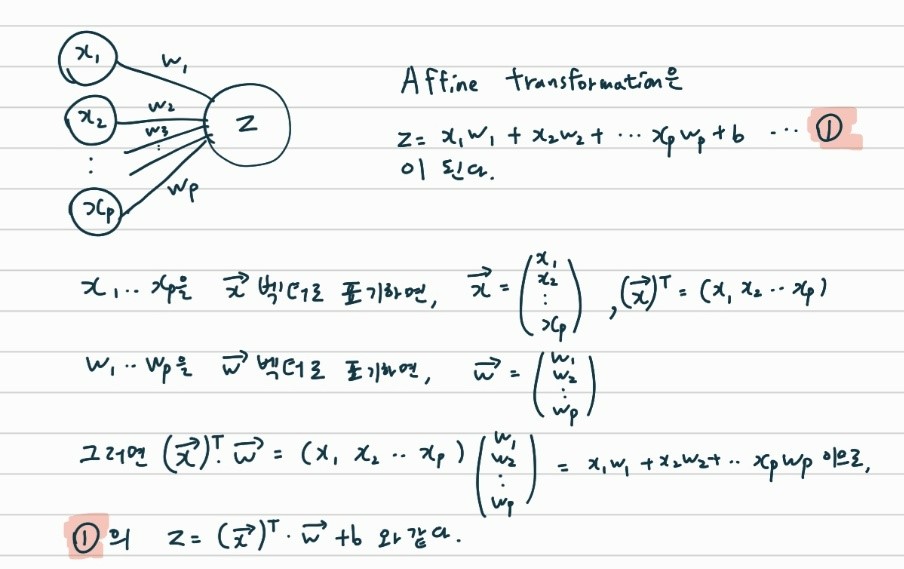 x₁ w₁
x₂ w₂
w₃
⋮
⋮
xₚ wₚ
z
Affine transformation은
z = x₁w₁ + x₂w₂ + ⋯ xₚwₚ + b ⋯ ①
이 된다.
x₁‥xₚ을 x⃗ 벡터로 표기하면, x⃗ = (x₁ x₂ ⋮ xₚ), (x⃗)ᵀ = (x₁ x₂ ‥ xₚ)
w₁‥wₚ을 w⃗ 벡터로 표기하면, w⃗ = (w₁ w₂ ⋮ wₚ)
그러면 (x⃗)ᵀ· w⃗ = (x₁ x₂ ‥ xₚ) (w₁ w₂ ⋮ wₚ) = x₁w₁ + x₂w₂ + ‥ xₚwₚ 이므로,
①의 z = (x⃗)ᵀ · w⃗ + b 와 같다.